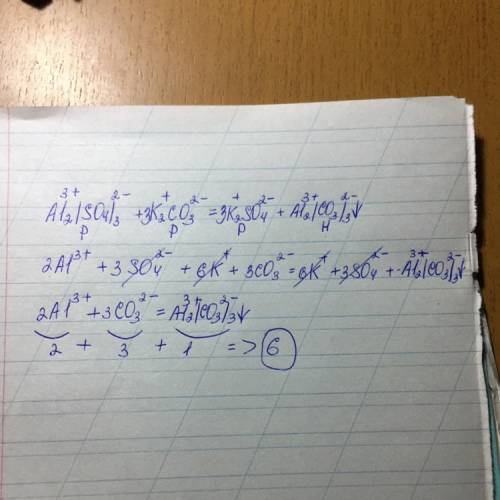 Al₂³⁺|SO₄|₃²⁻ + 3K₂⁺CO₃²⁻ = 3K₂⁺SO₄²⁻ + Al₂³⁺|CO₃|₃²⁻↓
р р р н
2Al³⁺ + 3SO₄²⁻ + 6K⁺ + 3CO₃²⁻ = 6K⁺ + 3SO₄²⁻ + Al₂³⁺|CO₃|₃²⁻↓
2Al³⁺ + 3CO₃²⁻ = Al₂³⁺|CO₃|₃²⁻↓
2 + 3 + 1 => 6